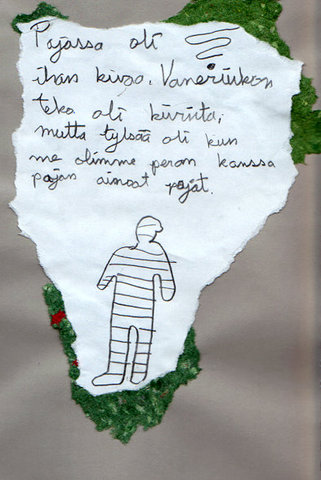 Pajassa oli
ihan kivaa. Vaneriukon
teko oli kivinta,
mutta tylsää oli kun
me olimme peran kanssa
pajan ainoat pojat.